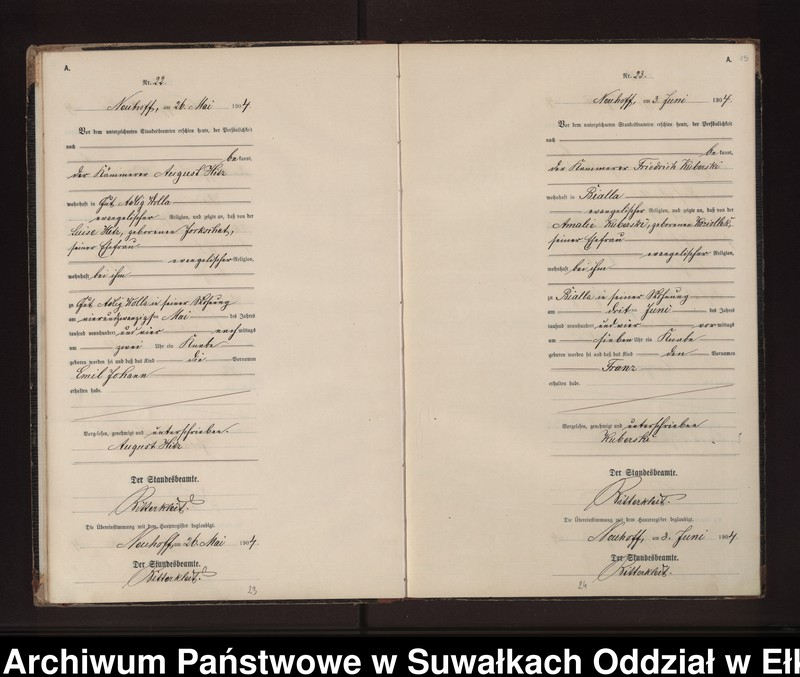 A.
Nr. 22
Neuhoff, am 26. Mai 1904.
Vor dem unterzeichneten Standesbeamten erschien heute, der Persönlichkeit
nach
bekannt,
der Kämmerer August Hitz
wohnhaft in Gut Adlig Wolla
evangelischer Religion, und zeigte an, daß von der
Luise Hitz, geborenen
seiner Ehefrau
evangelischer Religion,
wohnhaft bei ihm
zu Gut Adlig Wolla in seiner Wohnung
am vierundzwanzigsten Mai des Jahres
tausend neunhundert und vier nachmittags
um zwei Uhr ein Knabe
geboren worden sei und daß das Kind die Vornamen
Emil Johann
erhalten habe.
Vorgelesen, genehmigt und unterschrieben.
August Hitz
Der Standesbeamte.
Ritterkleit.
Die Übereinstimmung mit dem Hauptregister beglaubigt.
Neuhoff, am 26. Mai 1904.
Der Standesbeamte.
Ritterkleit.
23
A.
Nr. 23.
Neuhoff, am 3. Juni 1904.
Vor dem unterzeichneten Standesbeamten erschien heute, der Persönlichkeit
nach
bekannt,
der Kämmerer Friedrich Kuberski
wohnhaft in Rialla
evangelischer Religion, und zeigte an, daß von der
Amalie Kuberski, geborenen
seiner Ehefrau
evangelischer Religion,
wohnhaft bei ihm
zu Rialla in seiner Wohnung
am dritten Juni des Jahres
tausend neunhundert und vier vormittags
um sieben Uhr ein Knabe
geboren worden sei und daß das Kind den Vornamen
Franz
erhalten habe.
Vorgelesen, genehmigt und unterschrieben
Kuberski
Der Standesbeamte.
Ritterkleit.
Die Übereinstimmung mit dem Hauptregister beglaubigt.
Neuhoff, am 3. Juni 1904.
Der Standesbeamte.
Ritterkleit.
24
Archiwum Państwowe w Suwałkach Oddział w Ełk